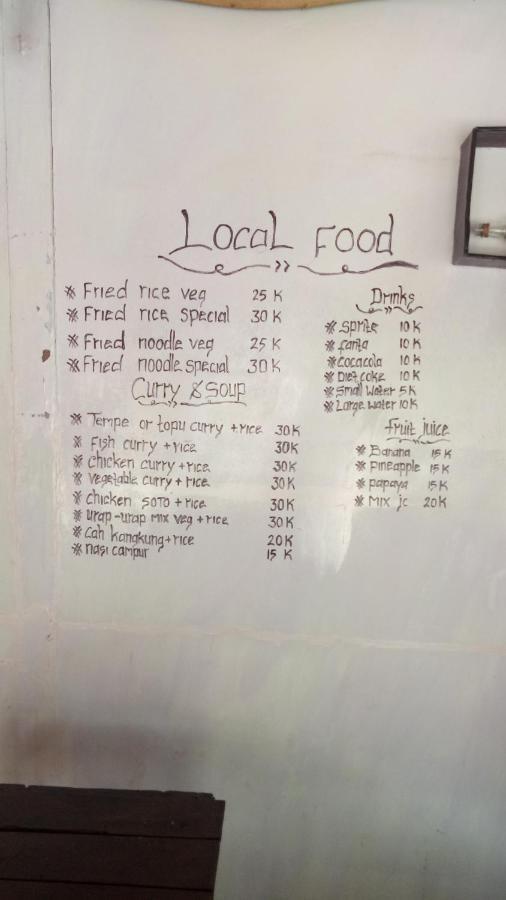 Local Food
* Fried rice veg 25 K
* Fried rice special 30 K
* Fried noodle veg 25 K
* Fried noodle special 30 K
Curry & Soup
* Tempe or topu curry + rice 30 K
* Fish curry + rice 30K
* chicken curry + rice 30K
* vegetable curry + rice 30K
* chicken SOTO + rice 30K
* urap-urap mix veg + rice 30 K
* cah kangkung + rice 20 K
* nasi campur 15 K
Drinks
* sprite 10 K
* fanta 10 K
* cocacola 10 K
* Diet coke 10 K
* Small water 5 K
* Large water 10K
fruit juice
* Banana 15 K
* pineapple 15 K
* papaya 15 K
* Mix jc 20K